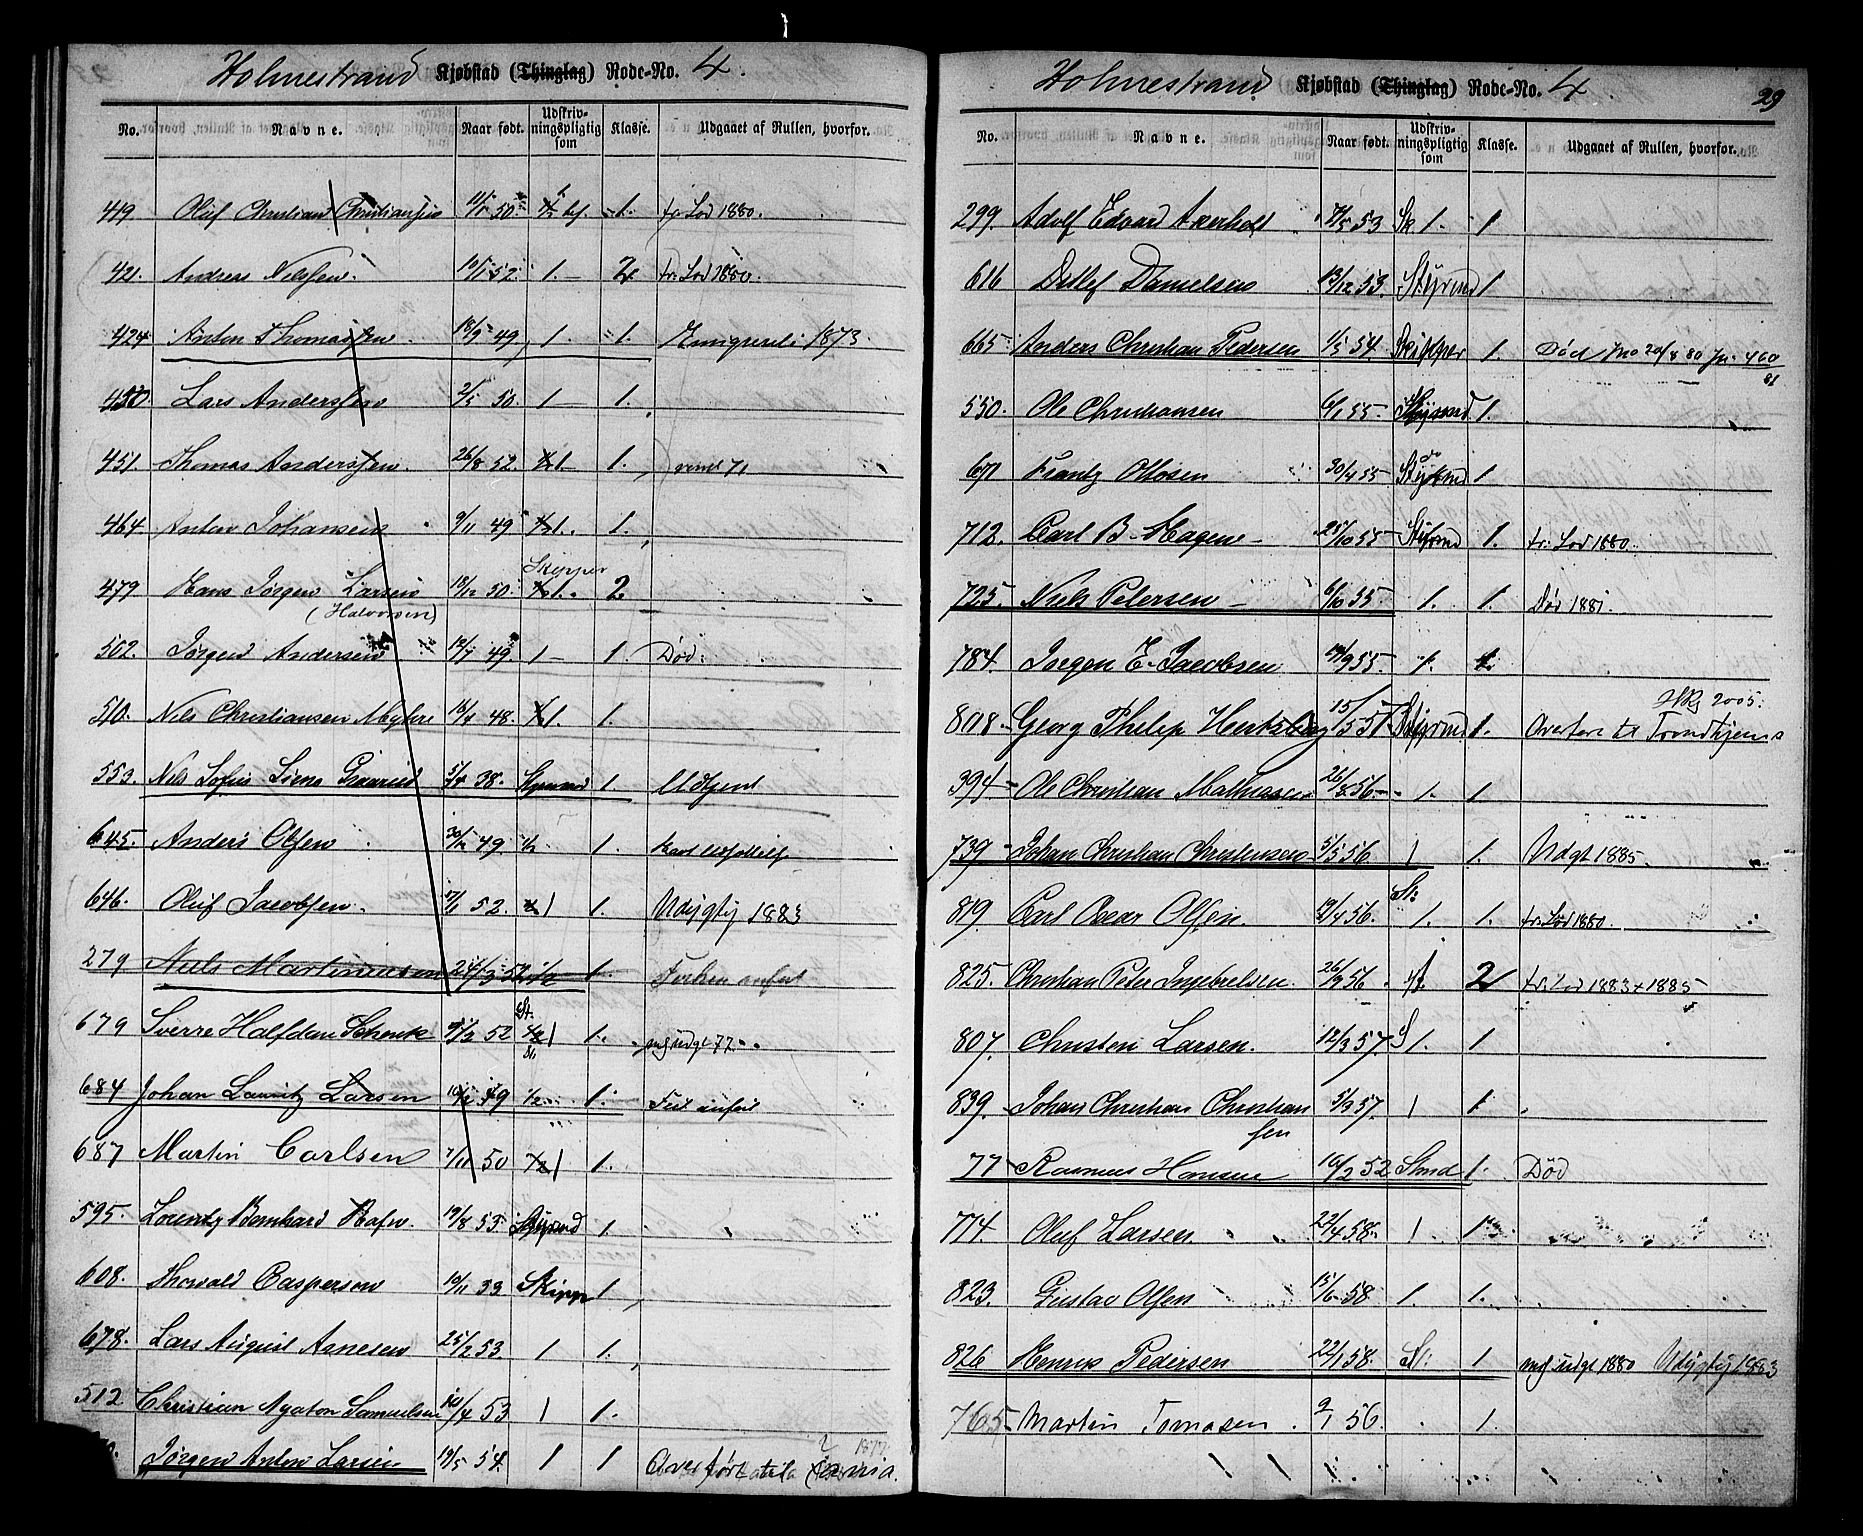 Holmestrand Kjøbstad (Thinglag) Rode-No. 4.
No. Navne. Naar født. Udskriv-ningspligtig som Klasse. Udgaaet af Rullen, hvorfor.
419 Oluf Christian Christiansen 50 1. fr. Lod 1880.
421. Andreas Nilsen. 10/1 52. 1. 2. fr. Lod 1880.
424 Anton Thomassen 18/9 49, 1. 1. Emigreret i 1873.
450 Lars Andersen 2/5 50. 1 1.
451. Thomas Andersen. 26/8 52. 1 1.
464. Anton Johansen 9/11 49 1. 1.
Skipper
479 Hans Jørgen Larsen 18/12 50. 1. 2
(Halvorsen)
502. Jørgen Andersen 49. 1 1. Død.
510. Nils Christiansen Myhre 15/4 48. 1. 1.
553. Nils Sofus Siems Gaarud 5/4 38. Styrmand 1.
645. Anders Olsen 30/12 49. 1/2 1.
646. Oluf Jacobsen. 17/1 52. 1 1. Udygtig 1883
279 Niels Martiniussen 24/3 52 1/2 1. Feilen anført
679 Sverre Halfdan Schenk 52 1 1. udgt 77.
684 Johan Lauritz Larsen 49 1/2 1. Feil anført
687 Martin Carlsen 7/11 50 1 1.
595. Lorentz Bernhard Hafn. 19/8 53. Styrmd 1.
608. Thorvald Caspersen 10/11 33 Skipp 1
678. Lars August Arnesen 25/2 53. 1 1.
512 Christian Agaton Samuelsen 10/4 53 1 1.
Jørgen Anton Larsen 19/5 54. 1 1 Overført til
Holmestrand Kjøbstad (Thinglag) Rode-No. 4. 29
No. Navne. Naar født. Udskriv-ningspligtig som Klasse. Udgaaet af Rullen, hvorfor.
299. Adolf Edvard Akerholt 7/5 53 Sk 1. 1
616 Detlef Danielsen 13/12 53. Styrmd 1
665 Anders Christian Pedersen 1/5 54. Skipper 1. Død 20/8 80 Jn. 460/81
550. Ole Christiansen 6/1 55. Styrmd. 1.
671 Frantz Ottosen 30/4 55 Styrmd 1
712. Carl B. Hagen 25/10 55 Styrmd 1. fr. Lod 1880.
725. Niels Petersen 6/10 55. 1. 1. Død 1881.
784. Jørgen E. Jacobsen 19/9 55. 1. 1.
2005.
808. Georg Philip Hertzberg 15/1 55 Styrmd 1. Overført til Trondhjem
394. Ole Christian Mathiassen 26/8 56. 1. 1.
739 Johan Christian Christensen 5/5 56 1 1. Udgt 1885.
819. Carl Oscar Olsen. 19/4 56. St: 1. 1. fr. Lod 1880.
825. Christian Peter Ingebretsen. 26/9 56 2 fr. Lod 1883 + 1885
807. Christen Larsen. 12/3 57. S 1. 1
839. Johan Christian Christian 5/9 57. 1 1.
sen
77 Rasmus Hansen 16/2 52 Stmd 1. Død
774. Oluf Larsen. 22/4 58. 1 1
823. Gustav Olsen 15/6 58. 1. 1.
826 Henrik Pedersen 22/1 58. St: 1 udgt 1880 Udygtig 1883
765 Martin Tomasen 9/1 56. 1.